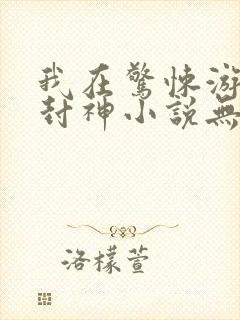 我在驚悚游
封神小說無
洛檬萱